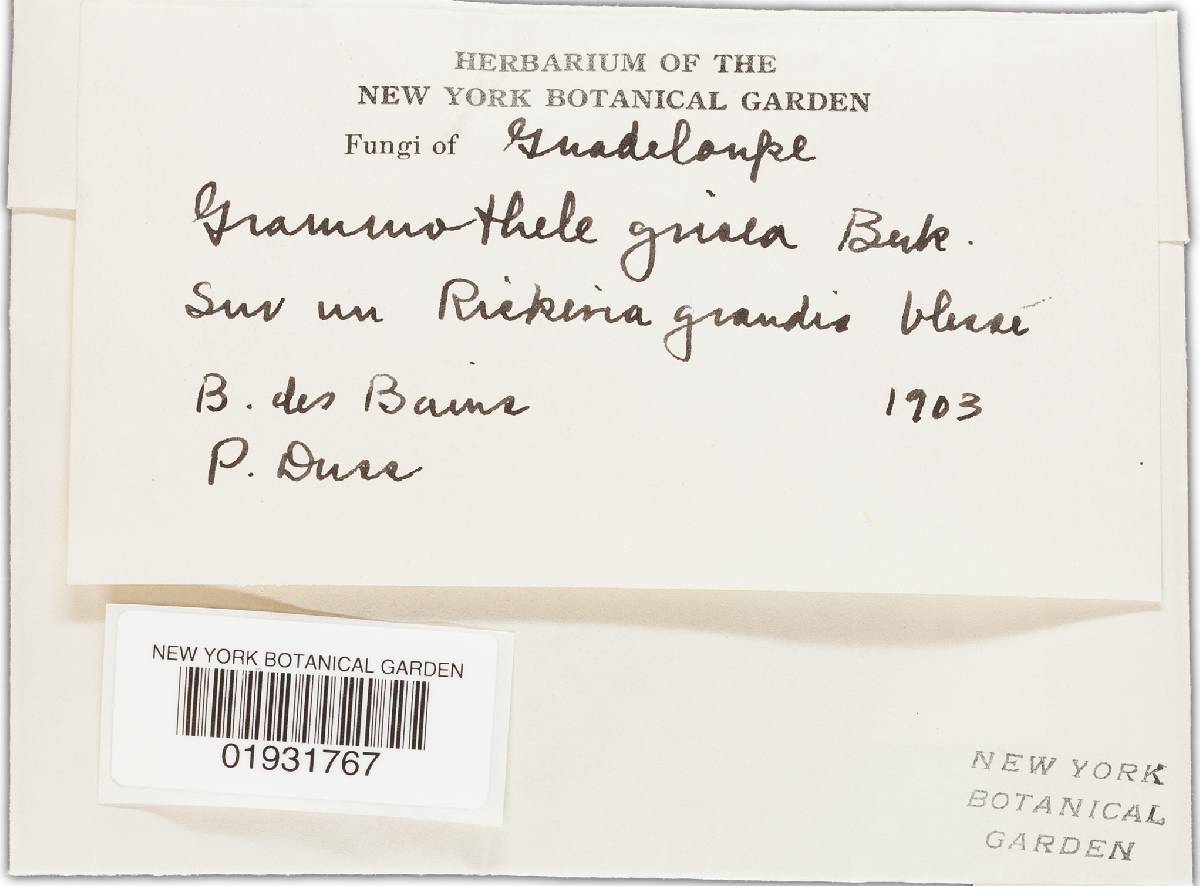 HERBARIUM OF THE
NEW YORK BOTANICAL GARDEN
Fungi of Guadeloupe
Grammothele grisea Berk.
Sur un Rickeria grandis blessé
B. des Bains 1903
P. Duss
NEW YORK BOTANICAL GARDEN
01931767
NEW YORK
BOTANICAL
GARDEN